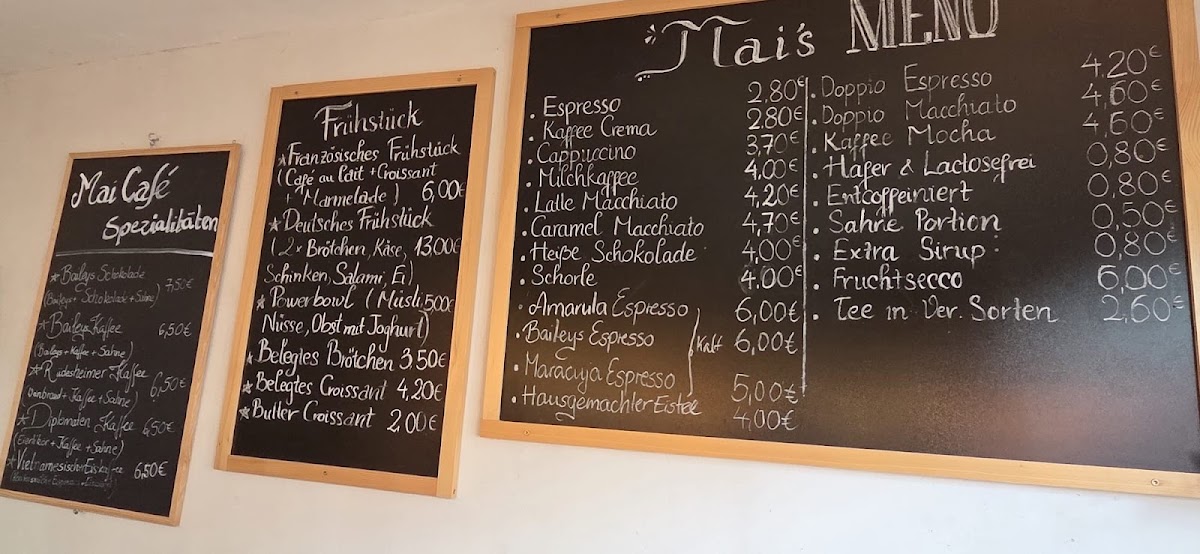 Mai Café
Spezialitäten
* Baileys Schokolade 7,50€
(Baileys + Schokolade + Sahne)
* Baileys Kaffee 6,50€
(Baileys + Kaffee + Sahne)
* Rüdesheimer Kaffee 6,50€
+ Kaffee + Sahne)
* Diplomaten Kaffee 6,50€
(Eierlikör + Kaffee + Sahne)
* 6,50€
Frühstück
* Französisches Frühstück
(Café au Lait + Croissant
+ Marmelade) 6,00€
* Deutsches Frühstück
(2x Brötchen, Käse, 13,00€
Schinken, Salami, Ei)
* Powerbowl (Müsli, 5,00€
Nüsse, Obst mit Joghurt)
* Belegtes Brötchen 3,50€
* Belegtes Croissant 4,20€
* Butter Croissant 2,00€
Mai's MENÜ
. Espresso 2,80€
. Kaffee Crema 2,80€
. Cappuccino 3,70€
. Milchkaffee 4,00€
. Latte Macchiato 4,20€
. Caramel Macchiato 4,70€
. Heiße Schokolade 4,00€
. Schorle 4,00€
. Amarula Espresso 6,00€
. Baileys Espresso kalt 6,00€
. Maracuja Espresso 5,00€
. Hausgemachter Eistee 4,00€
. Doppio Espresso 4,20€
. Doppio Macchiato 4,60€
. Kaffee Mocha 4,60€
. Hafer & Lactosefrei 0,80€
. Entcoffeiniert 0,80€
. Sahne Portion 0,50€
. Extra Sirup: 0,80€
. Fruchtsecco 6,00€
. Tee in Ver. Sorten 2,60€